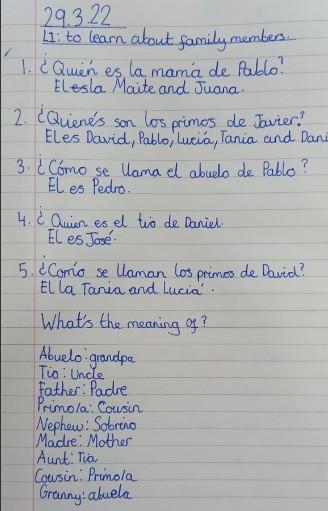 29.3.22
LI: to learn about family members.
1. ¿Quién es la mamá de Pablo?
El esla Maite and Juana.
2. ¿Quienés son los primos de Javier?
El es David, Pablo, Lucía, Tania and Dani
3. ¿Cómo se llama el abuelo de Pablo?
El es Pedro.
4. ¿Quien es el tio de Daniel.
El es José.
5. ¿Como se llaman los primos de David?
El la Tania and Lucia.
What's the meaning of?
Abuelo: grandpa
Tio: Uncle
Father: Padre
Primo/a: Cousin
Nephew: Sobrino
Madre: Mother
Aunt: Tia
Cousin: Primo/a
Granny: abuela